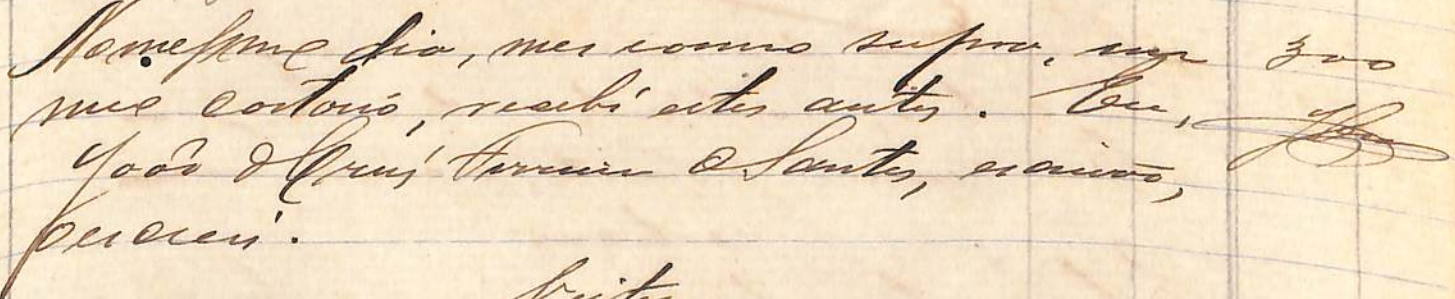 No mesmo dia, mes e anno supra, em 300
meu cartorio, recebi estes autos. Eu,
João d Cruz Ferreira d Santos, escrivão,
escrevi.